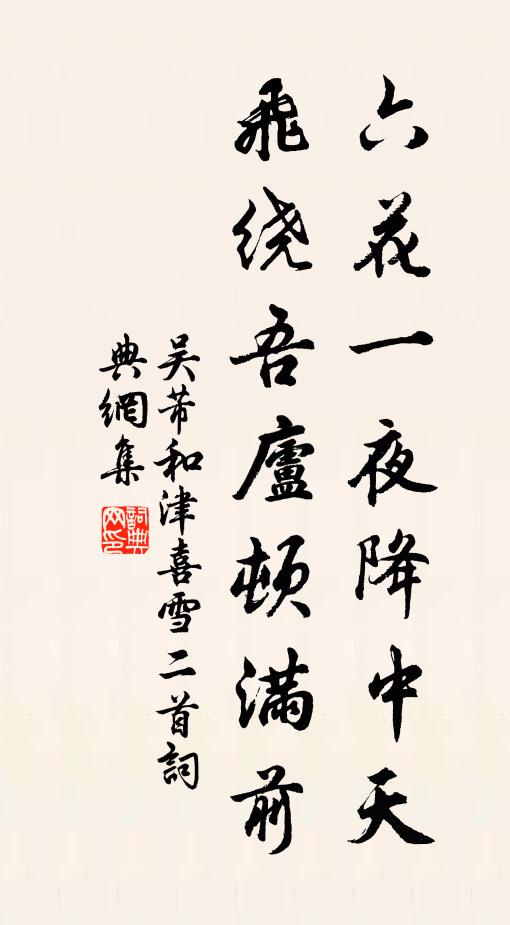 六花一夜降中天
飛绕吾廬頓滿前
吴芾和津喜雪二首詞
典網集
詞典
网印